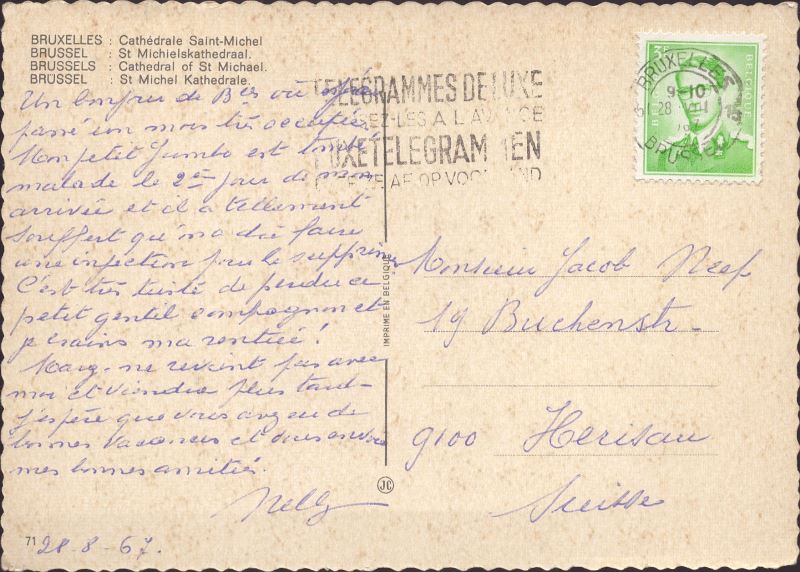 BRUXELLES : Cathédrale Saint-Michel
BRUSSEL : St Michielskathedraal.
BRUSSELS : Cathedral of St Michael.
BRÜSSEL : St Michel Kathedrale.
Un bonjour de Bles où j'ai
passé un mois très occupée.
Mon petit Jumbo est tombé
malade le 2e jour de mon
arrivée et il a tellement
souffert qu'on a dû faire
une injection pour le supprimer
C'est très triste de perdre ce
petit gentil compagnon et
je crains ma rentrée!
ne revient pas avec
moi et viendra plus tard-
J'espère que vous avez eu de
bonnes vacances et vous envoie
mes bonnes amitiés.
Nelly
71
28-8-67.
IMPRIME EN BELGIQUE
JC
TELEGRAMMES DE LUXE
A L'AVANCE
LUXETELEGRAMMEN
OP VOORHAND
BELGIE
BELGIQUE
3F
BRUXELLES
9-10
28
BRUSSEL
Monsieur Jacob Neef
19 Buchenstr-
9100 Herisau
Suisse